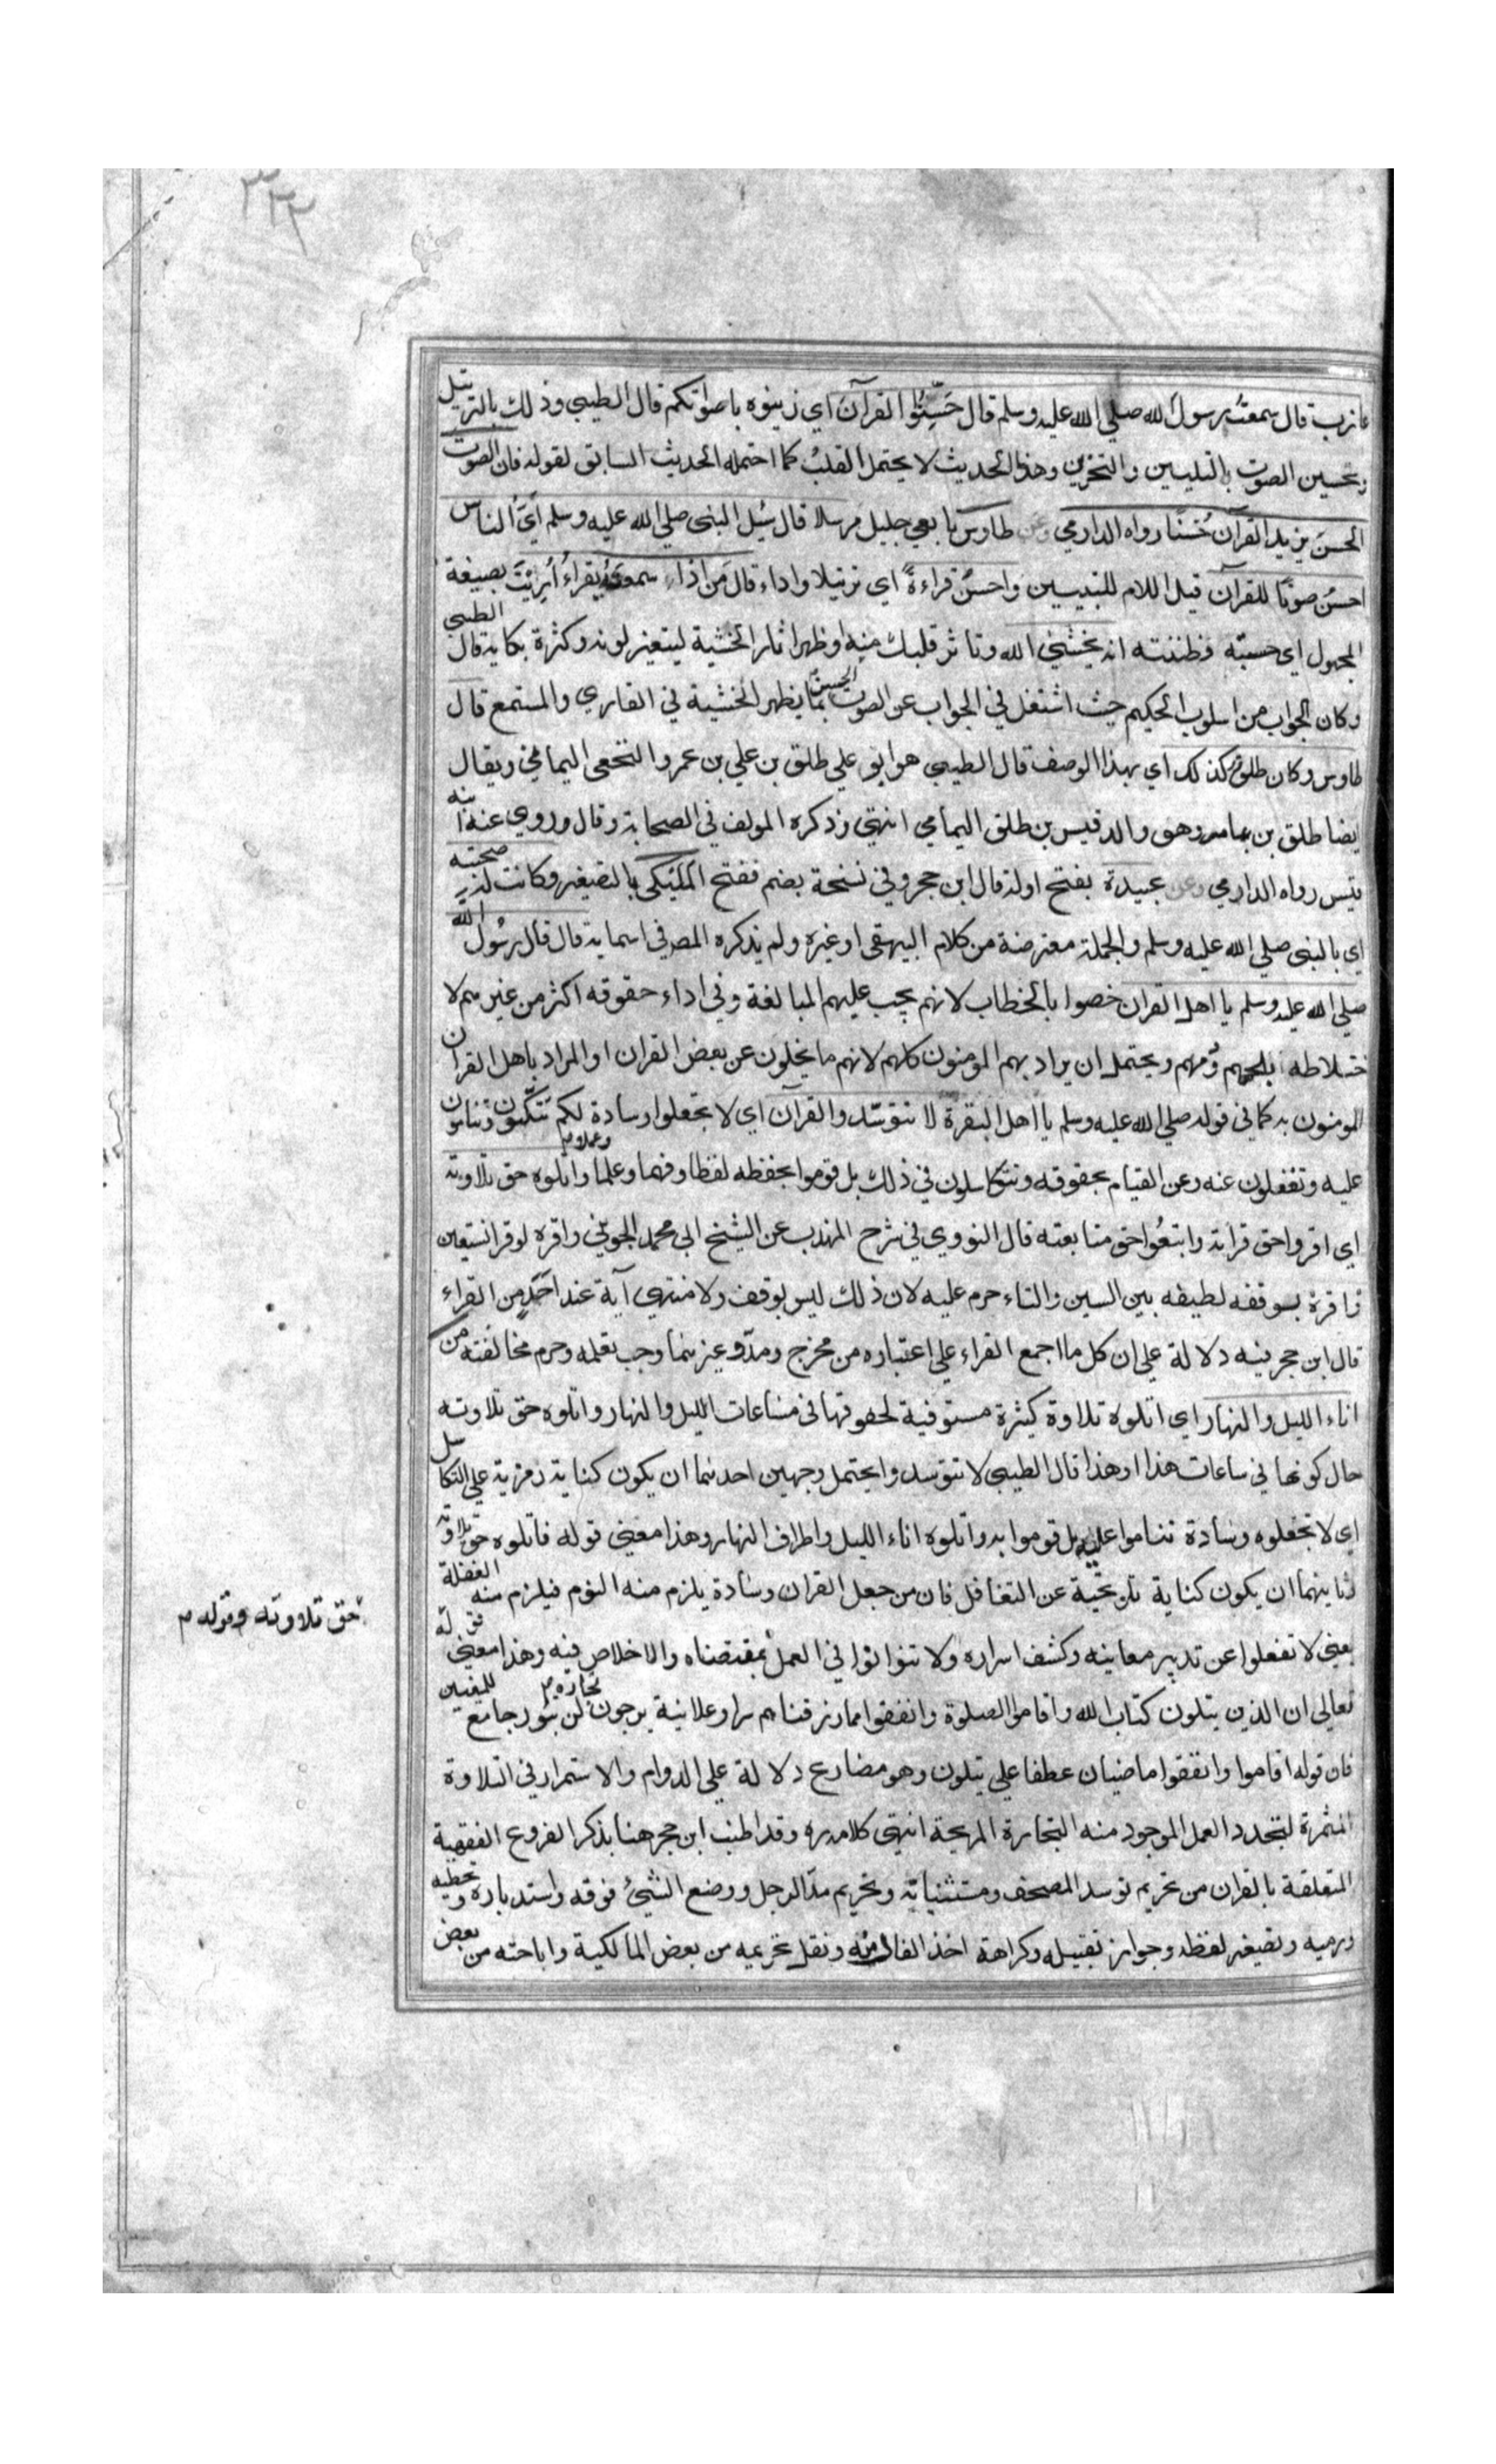 ٣٢٢
عازب قال سمعت رسول الله صلي الله عليه وسلم قال حَسِّنُوا القرآنَ اي زينوه باصواتكم قال الطيبي وذلك بالترتيل
وتحسين الصوت بالتليين والتحزين وهذا الحديث لا يحتمل القلبُ كما احتمله الحديث السابق لقوله فان الصوت
الحسنَ يزيد القرآن حُسنًا رواه الدارمي وعن طاوس تابعي جليل مرسلا قال سُئِل النبي صلي الله عليه وسلم ايُّ الناس
احسنُ صوتًا للقرآن قيل اللام للتبيين واحسنُ قراءةً اي ترتيلا واداء قال مَن اذا سمعتَه يقراءُ اُرِيْتَ بصيغة
المجهول اي حسبته وظننته انه يخشي الله وتاثر قلبك منه او ظهر اثار الخشية ليتغير لونه وكثرة بكايه قال الطيبي
وكان الجواب من اسلوب الحكيم حيث اشتغل في الجواب عن الصوت الحسن بما يظهر الخشية في القاري والمستمع قال
طاوس وكان طلق كذلك اي بهذا الوصف قال الطيبي هو ابو علي طلق بن علي بن عمرو النخعي اليمامي ويقال
ايضا طلق بن يمامه وهو والد قيس بن طلق اليمامي انتهي وذكره المولف في الصحابة وقال وروي عنه ابنه
قيس رواه الدارمي وعن عبيدة بفتح اوله قال ابن حجر وفي نسخة بضم ففتح المُلَيكي بالتصغير وكانت له صحبته
اي بالنبي صلي الله عليه وسلم والجملة معترضة من كلام البيهقي او غيره ولم يذكره المص في اسمايه قال قال رسُولُ الله
صلي الله عليه وسلم يا اهل القران خصوا بالخطاب لانهم يجب عليهم المبالغة وفي اداء حقوقه اكثر من غيرهم لا
ختلاطه بلحمهم ودمهم ويحتمل ان يراد بهم المومنون كلهم لانهم ما يخلون عن بعض القران او المراد باهل القران
المومنون به كما في قوله صلي الله عليه وسلم يا اهل البقرة لا تتوسّدوا القرآن اي لا تجعلوا وسادة لكم تتكئون وتنامون
عليه وتغفلون عنه وعن القيام بحقوقه وتتكاسلون في ذلك بل قوموا بحفظه لفظا وفهما وعلما وعملا م واتلوه حق تلاوته
اي اقروا حق قراته واتبعُوا حق متابعته قال النووي في شرح المهذب عن الشيخ ابي محمد الجويني واقره لو قرا نستعين
واقره بسوقفه لطيفه بين السين والتاء حرم عليه لان ذلك ليس بوقف ولا منتهي آية عند احَدٍ من القراء
قال ابن حجر فيه دلالة علي ان كل ما اجمع القراء علي اعتباره من مخرج ومدّ وغيرهما وجب تعلمه وحرم مخالفته من
اناء الليل والنهار اي اتلوه تلاوة كثيرة مستوفية لحقوقها في ساعات الليل والنهار واتلوه حق تلاوته
حال كونها في ساعات هذا وهذا قال الطيبي لا تتوسدوا يحتمل وجهين احدهما ان يكون كناية رمزية علي التكاسل
اي لا تجعلوه وسادة تناموا عليه بل قوموا به واتلوه اناء الليل واطراف النهار وهذا معني قوله فاتلوه حق تلاوته
وثانيهما ان يكون كناية تلويحية عن التغافل فان من جعل القران وسادة يلزم منه النوم فيلزم منه الغفلة
يعني لا تغفلوا عن تدبير معانيه وكشف اسراره ولا تتوانوا في العمل بمقتضاه والاخلاص فيه وهذا معني قوله
حق تلاوته وقوله م
تعالي ان الذين يتلون كتاب الله واقاموا الصلوة وانفقوا مما رزقناهم سرا وعلانية يرجون تجارة م لن تبور جامع للمعنيين
فان قوله اقاموا وانفقوا ماضيان عطفا علي يتلون وهو مضارع دلالة علي الدوام والاستمرار في التلاوة
المثمرة لتجدد العمل الموجود منه التجارة المربحة انتهي كلامه وقد اطنب ابن حجر هنا بذكر الفروع الفقهية
المتعلقة بالقران من تحريم توسد المصحف ومستثنياته وتحريم مدّ الرجل ووضع الشيئ فوقه واستدباره وتخطيه
ورميه وتصغير لفظه وجواز تقبيله وكراهة اخذ الفال منه ونقل تحريمه من بعض المالكية واباحته من بعض